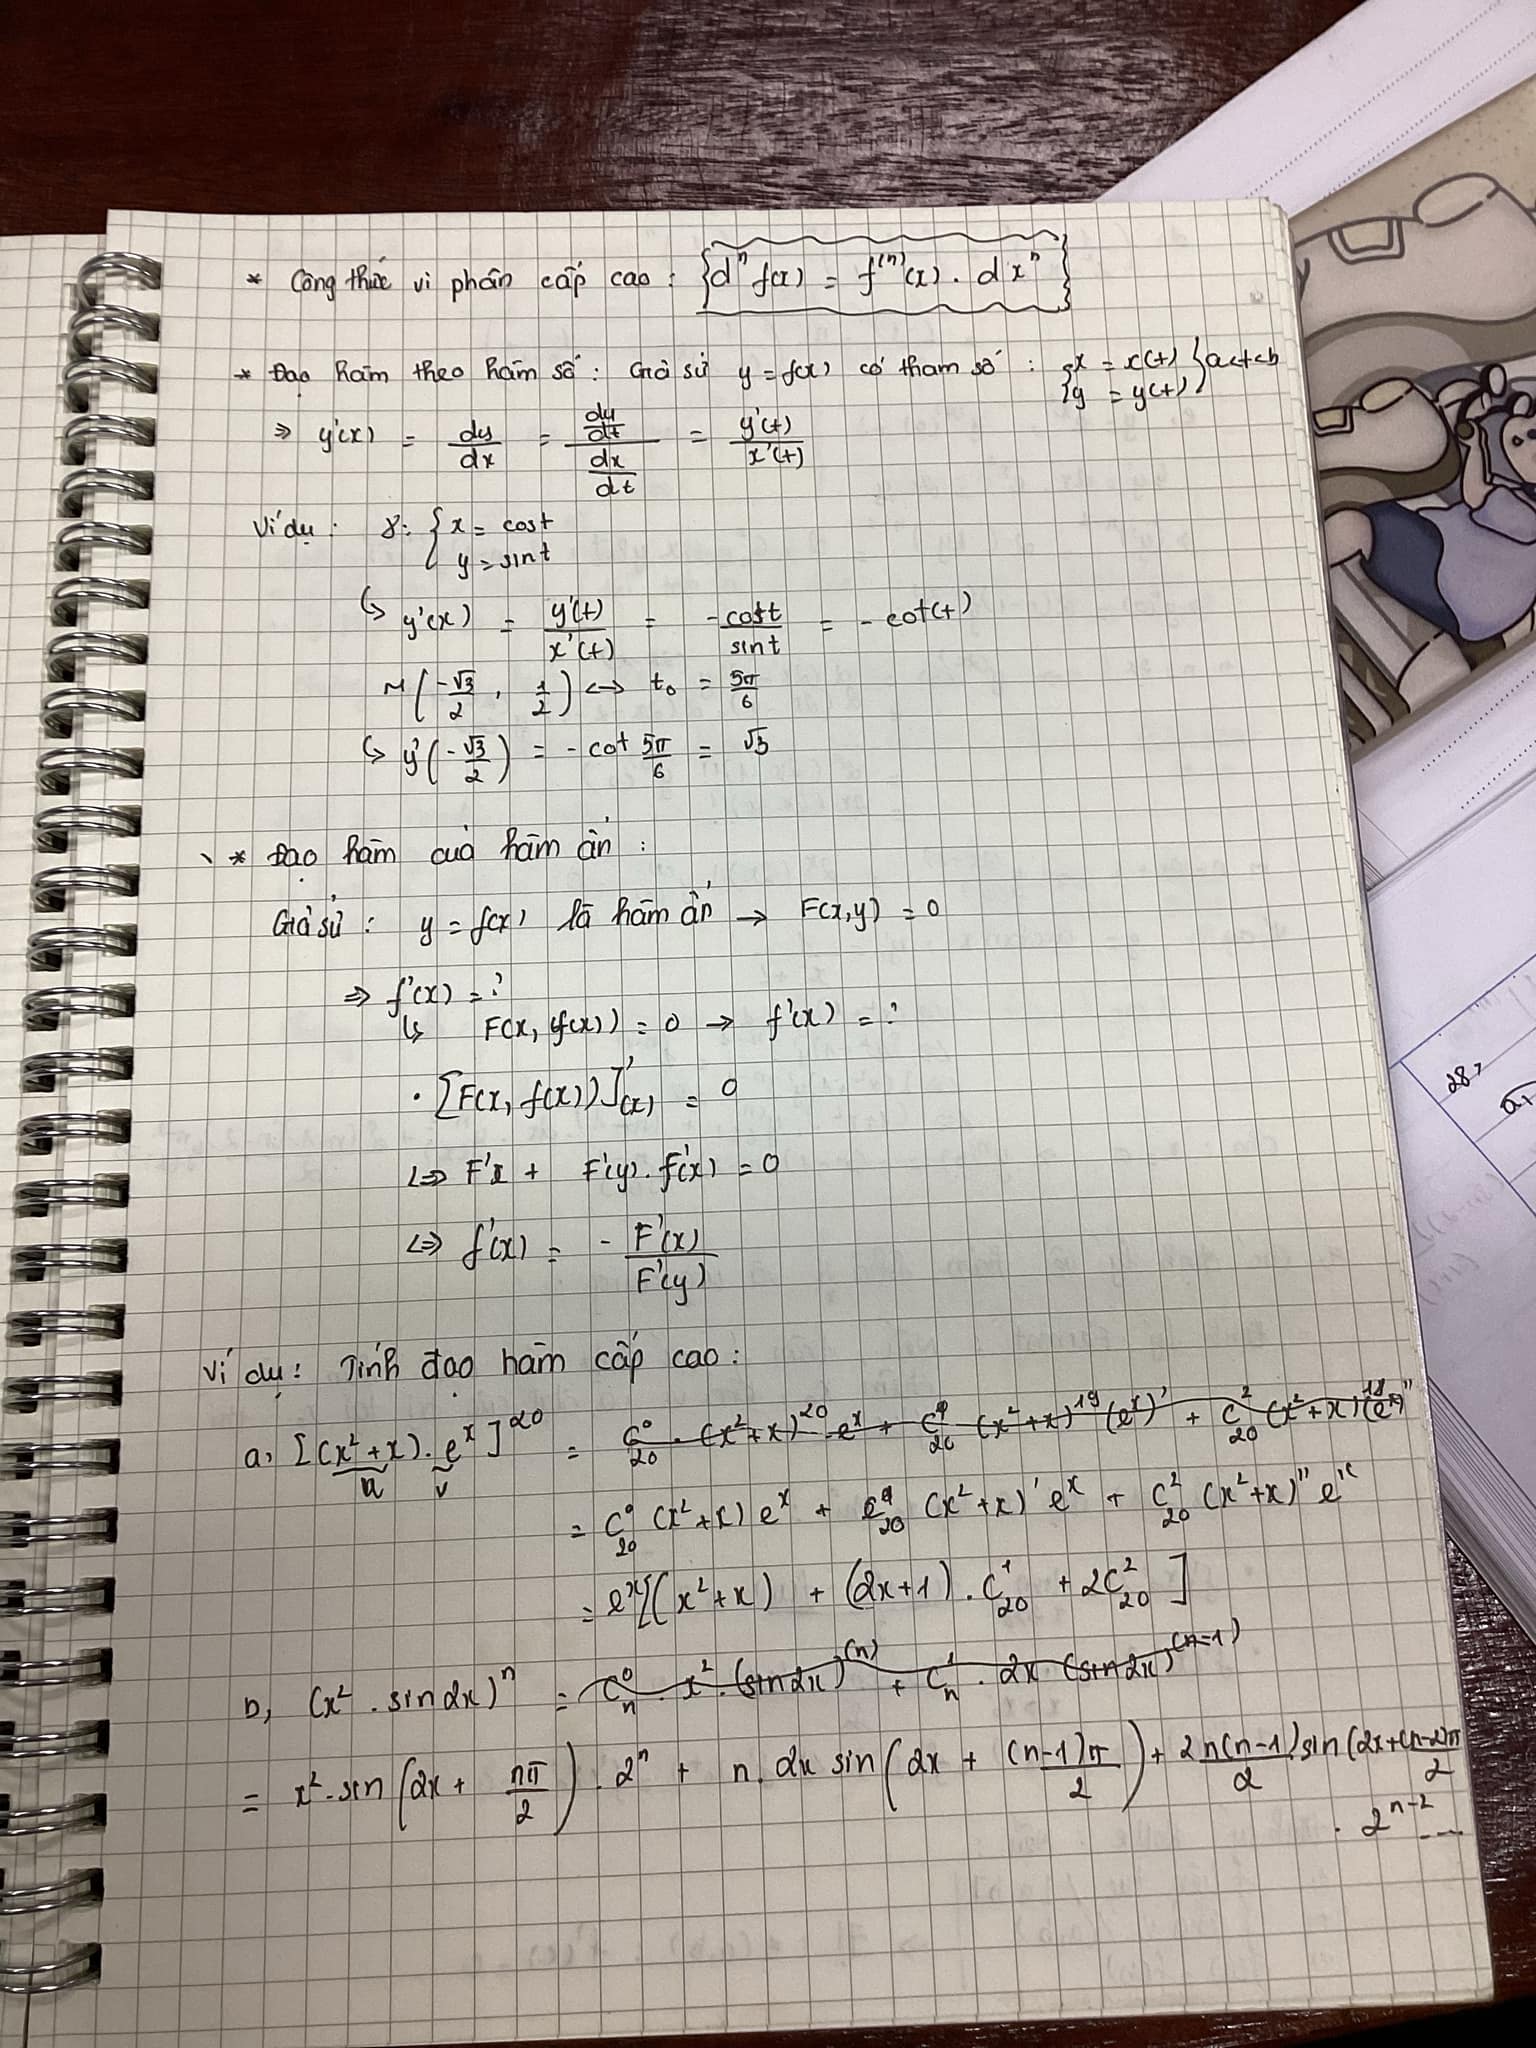 * Công thức vi phân cấp cao : {dⁿ f(x) = f⁽ⁿ⁾(x) . dxⁿ}
* Đạo hàm theo hàm số : Giả sử y = f(x) có tham số : {x = x(t) y = y(t)} a<t<b
⇒ y'(x) = dy/dx = (dy/dt)/(dx/dt) = y'(t)/x'(t)
Ví dụ : 8: { x = cost
y = sint
↳ y'(x) = y'(t)/x'(t) = -cost/sint = - cot(t)
M(-√3/2 , 1/2) ↔ t₀ = 5π/6
↳ y'(-√3/2) = - cot 5π/6 = √3
* Đạo hàm của hàm ẩn :
Giả sử : y = f(x) là hàm ẩn → F(x,y) = 0
⇒ f'(x) = ?
↳ F(x, f(x)) = 0 → f'(x) = ?
. [F(x, f(x))]'(x) = 0
⇔ F'x + F'(y). f'(x) = 0
⇔ f'(x) = - F'(x)/F'(y)
Ví dụ : Tính đạo hàm cấp cao :
a, [(x²+x). eˣ]²⁰ = C⁰₂₀ . (x²+x)²⁰ . eˣ + C¹₂₀ (x²+x)¹⁹ (eˣ)' + C²₂₀ (x²+x)¹⁸ (eˣ)''
u v
= C⁰₂₀ (x²+x) eˣ + C¹₂₀ (x²+x)' eˣ + C²₂₀ (x²+x)'' eˣ
= eˣ[(x²+x) + (2x+1) . C¹₂₀ + 2C²₂₀ ]
b, (x² . sin2x)ⁿ = C⁰ₙ . x² . (sin2x)⁽ⁿ⁾ + C¹ₙ . 2x (sin2x)⁽ⁿ⁻¹⁾
= x² . sin(2x + nπ/2) . 2ⁿ + n. 2x sin(2x + (n-1)π/2) + 2n(n-1)/2 sin(2x+(n-2)π/2
. 2ⁿ⁻² ...
28,
a,